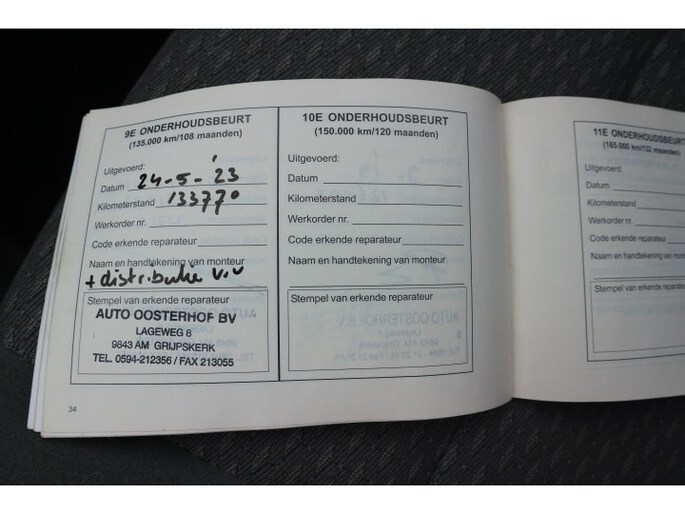 9E ONDERHOUDSBEURT
(135.000 km/108 maanden)
Uitgevoerd:
Datum 24-5-23
Kilometerstand 133770
Werkorder nr.
Code erkende reparateur
Naam en handtekening van monteur
+ distributie v.v
Stempel van erkende reparateur
AUTO OOSTERHOF BV
LAGEWEG 8
9843 AM GRIJPSKERK
TEL. 0594-212356 / FAX 213055
34
10E ONDERHOUDSBEURT
(150.000 km/120 maanden)
Uitgevoerd:
Datum
Kilometerstand
Werkorder nr.
Code erkende reparateur
Naam en handtekening van monteur
Stempel van erkende reparateur
AUTO OOSTERHOF B.V.
Lageweg
9843 AM Grijpskerk
11E ONDERHOUDSBEURT
(165.000 km/132 maanden)
Uitgevoerd:
Datum
Kilometerstand
Werkorder nr.
Code erkende reparateur
Naam en handtekening van monteur
Stempel van erkende reparateur